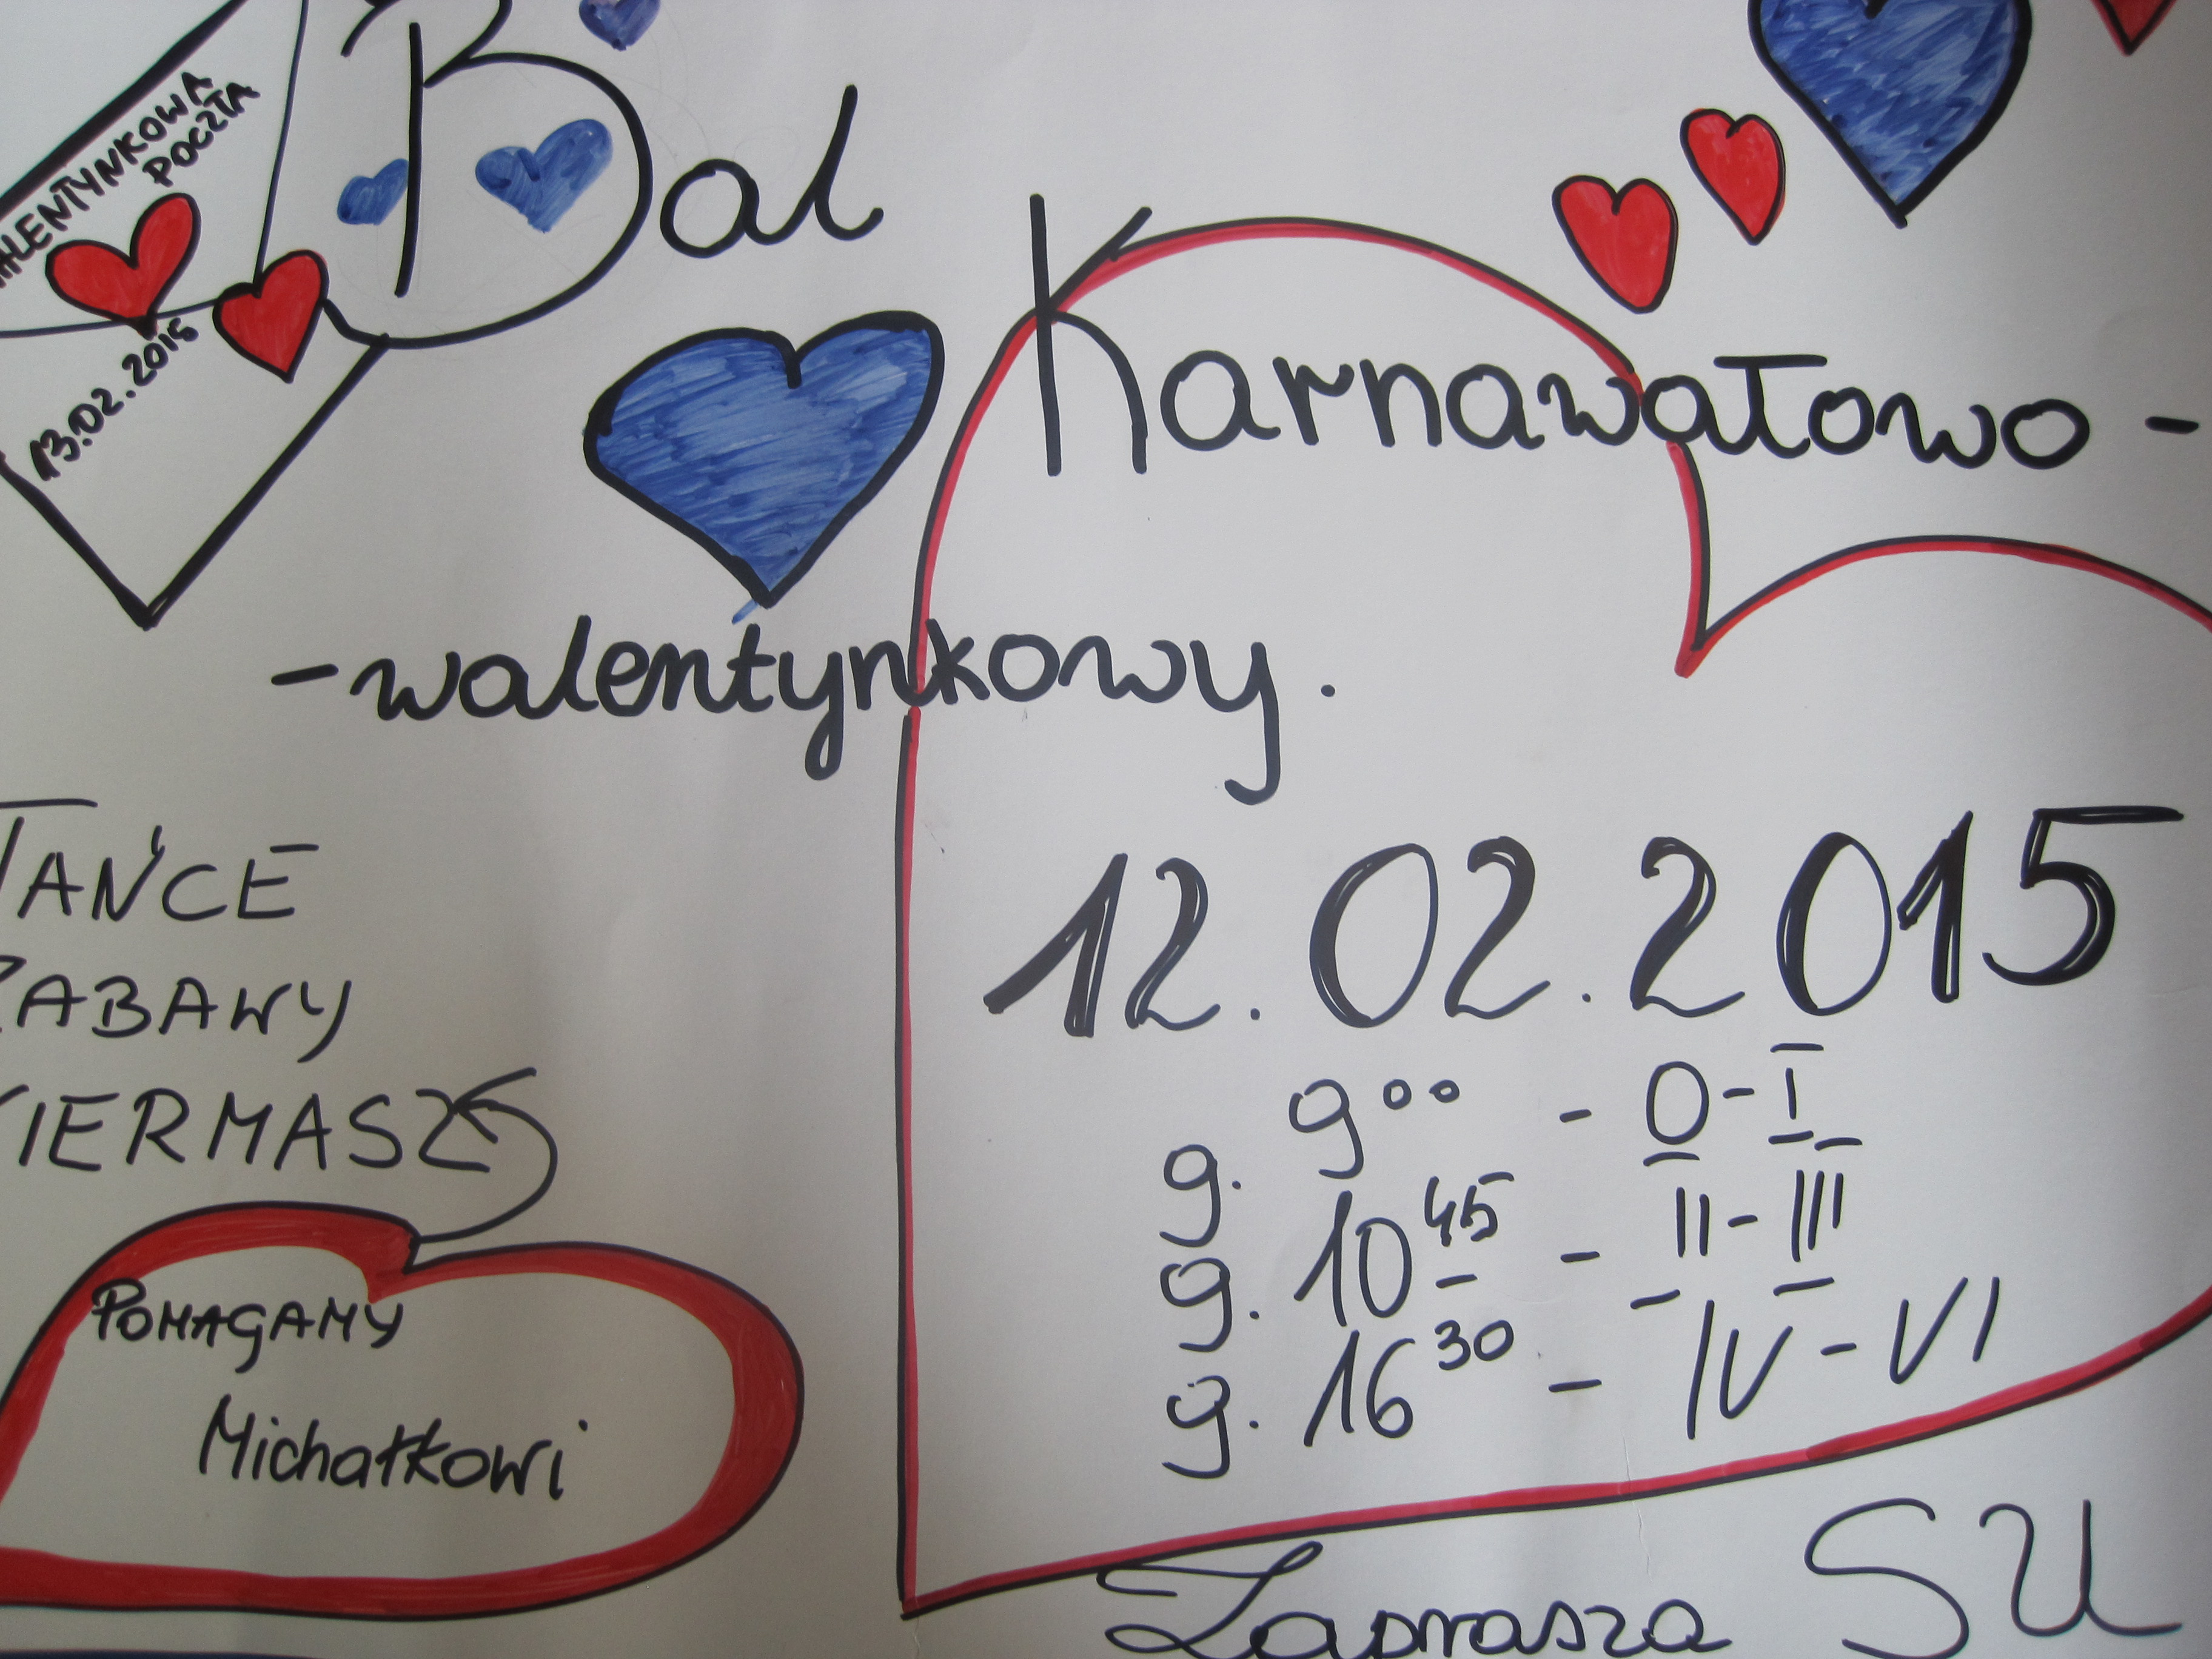 WALENTYNKOWA
POCZTA
13.02.2015
Bal
Karnawałowo -
- walentynkowy.
TAŃCE
ZABAWY
KIERMASZ
POMAGAMY
Michałkowi
12.02.2015
g. 9⁰⁰ - 0-I
g. 10⁴⁵ - II-III
g. 16³⁰ - IV-VI
Zaprasza SU